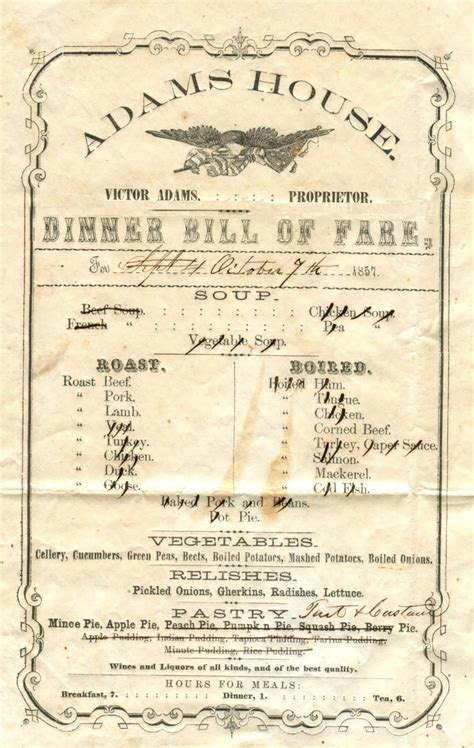 ADAMS HOUSE.
VICTOR ADAMS, : : : : : PROPRIETOR.
DINNER BILL OF FARE,
For Sept 4 October 7th 1857.
SOUP.
Beef Soup. : : : : : : : : Chicken Soup.
French " : : : : : : : : Pea "
Vegetable Soup.
ROAST.
Roast Beef.
" Pork.
" Lamb.
" Veal.
" Turkey.
" Chicken.
" Duck.
" Goose.
BOILED.
Boiled Ham.
" Tongue.
" Chicken.
" Corned Beef.
" Turkey, Caper Sauce.
" Salmon.
" Mackerel.
" Cod Fish.
Baked Pork and Beans.
Pot Pie.
VEGETABLES.
Cellery, Cucumbers, Green Peas, Beets, Boiled Potators, Mashed Potatoes, Boiled Onions.
RELISHES.
Pickled Onions, Gherkins, Radishes, Lettuce.
PASTRY. Tart & Custard
Mince Pie, Apple Pie, Peach Pie, Pumpk n Pie, Squash Pie, Berry Pie.
Apple Pudding, Indian Pudding, Tapioca Pudding, Farina Pudding,
Minute Pudding, Rice Pudding.
Wines and Liquors of all kinds, and of the best quality.
HOURS FOR MEALS:
Breakfast, 7. : : : : : : Dinner, 1. : : : : : : Tea, 6.